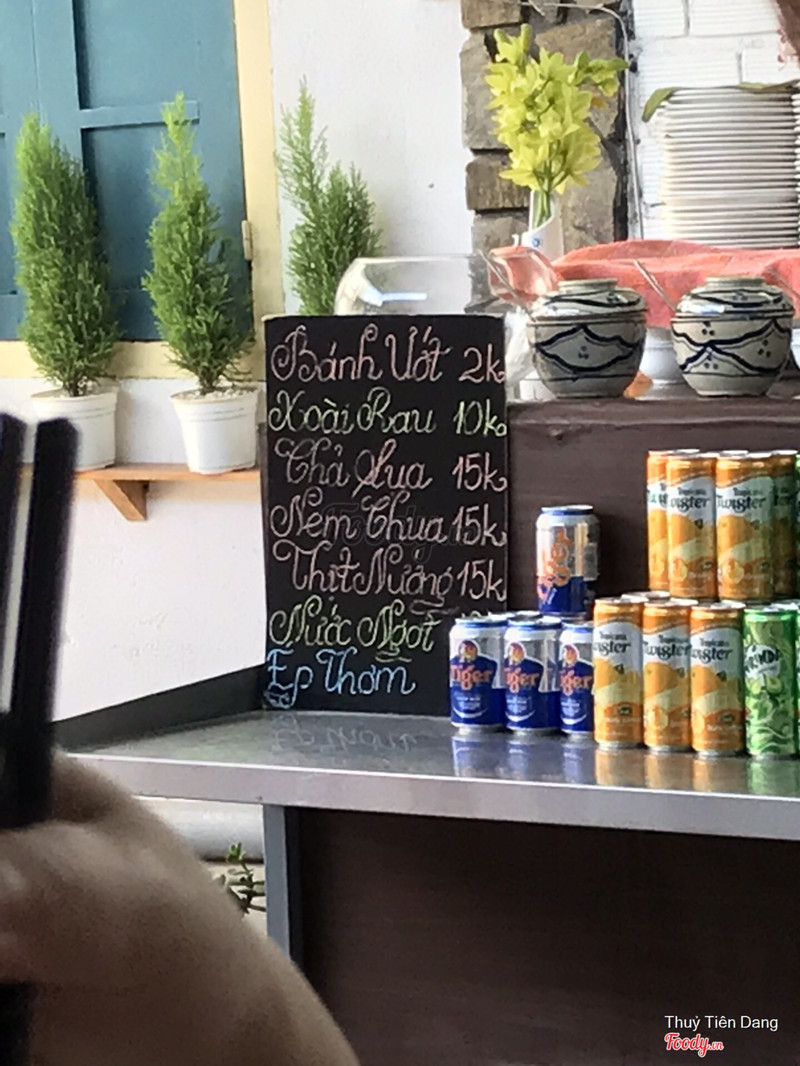 Bánh Ướt 2k
Xoài Rau 10k
Chả Lụa 15k
Nem Chua 15k
Thịt Nướng 15k
Nước Ngọt
Ép Thơm
Tiger
Tiger
Tiger
Tiger
Twister
Tropicana
Twister
Tropicana
Twister
Tropicana
Twister
Tropicana
Twister
Thuỷ Tiên Dang
Foody.vn